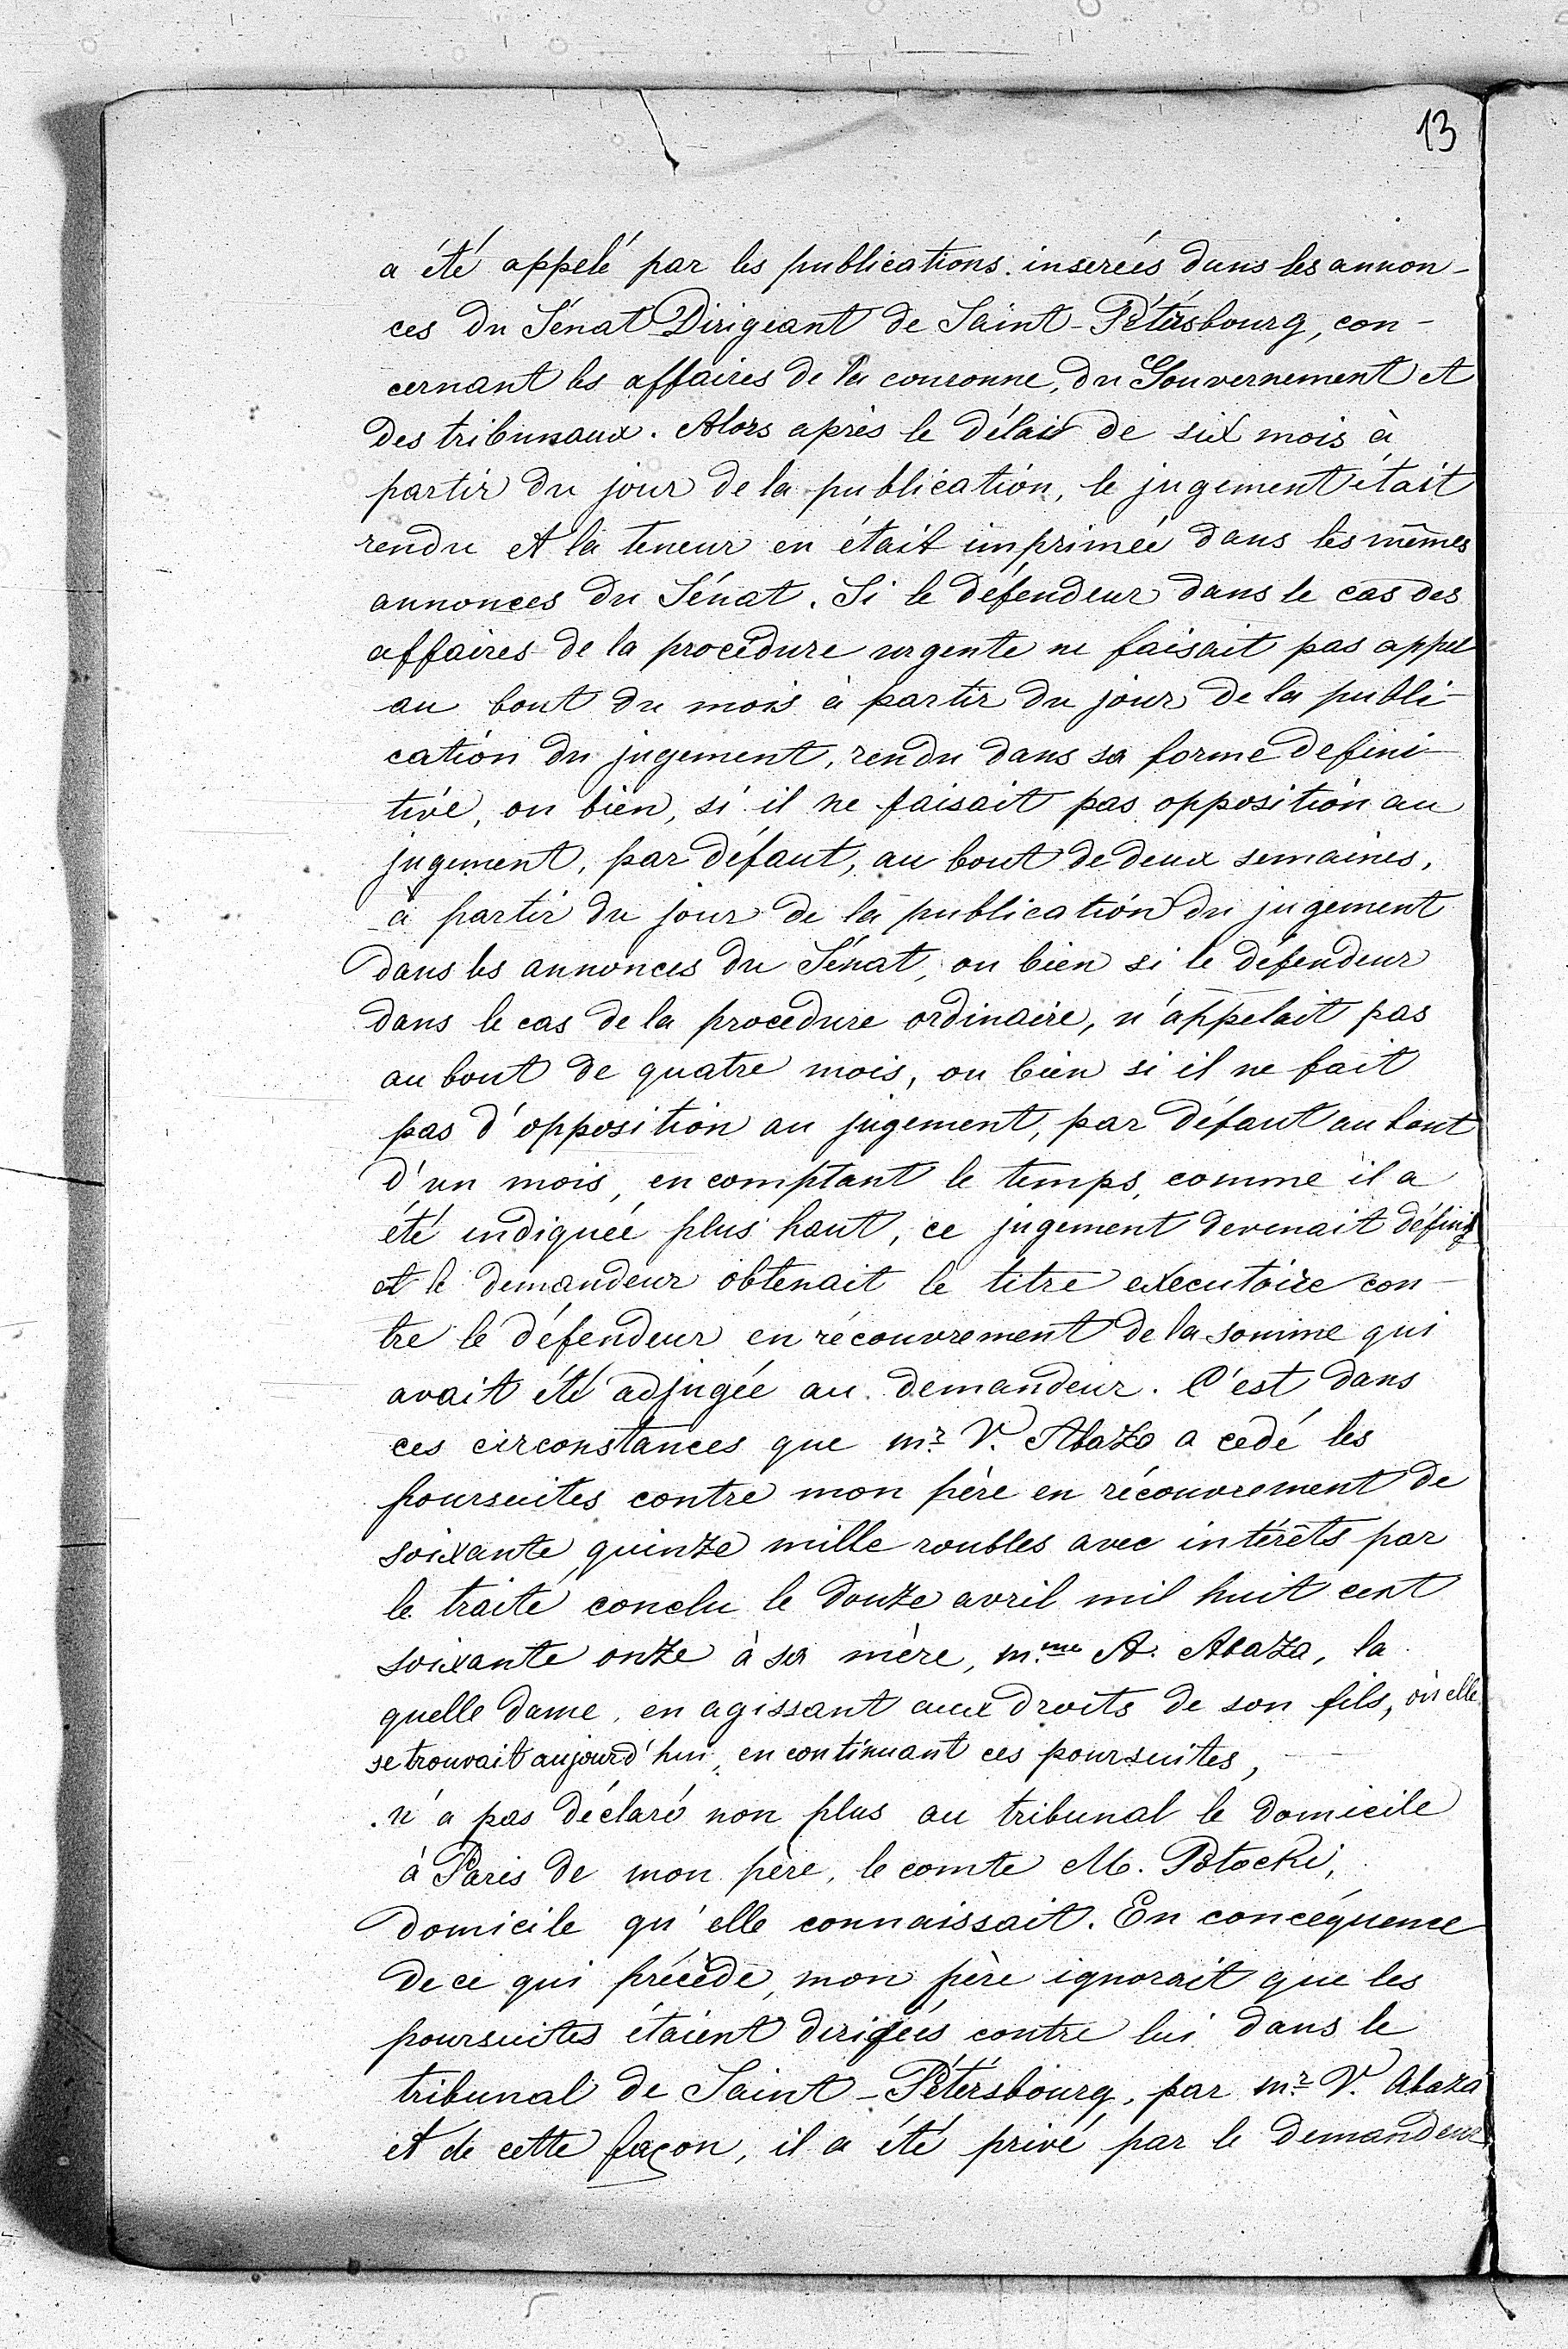 13
a été appelé par les publications inserées dans les annon-
ces du Sénat Dirigeant de Saint-Pétersbourg, con-
cernant les affaires de la couronne, du Gouvernement et
des tribunaux. Alors après le délais de six mois à
partir du jour de la publication, le jugement était
rendu et la teneur en était imprimée dans les mêmes
annonces du Sénat. Si le défendeur dans le cas des
affaires de la procédure urgente ne faisait pas appel
au bout du mois à partir du jour de la publi-
cation du jugement, rendu dans sa forme defini-
tive, ou bien, si il ne faisait pas opposition au
jugement, par défaut, au bout de deux semaines,
à partir du jour de la publication du jugement
dans les annonces du Sénat, ou bien si le défendeur
dans le cas de la procedure ordinaire, n'appelait pas
au bout de quatre mois, ou bien si il ne fait
pas d'opposition au jugement, par défaut au bout
d'un mois, en comptant le temps, comme il a
été indiquée plus haut, ce jugement devenait définif
et le demandeur obtenait le titre executoire con-
tre le défendeur en récouvrement de la somme qui
avait été adjugée au demandeur. C'est dans
ces circonstances que mr. V. Abaza a cedé les
poursuites contre mon père en récouvrement de
soixante quinze mille roubles avec intérêts par
le traité conclu le douze avril mil huit cent
soixante onze à sa mère, m.me A. Abaza, la
quelle dame, en agissant aux droits de son fils, où elle
se trouvait aujourd'hui, en continuant ces poursuites,
n'a pas déclaré non plus au tribunal le domicile
à Paris de mon père, le comte M. Potocki,
domicile qu'elle connaissait. En concéquence
de ce qui précède, mon père ignorait que les
poursuites étaient dirigées contre lui dans le
tribunal de Saint-Pétersbourg, par mr. V. Abaza
et de cette façon, il a été privé par le demandeur